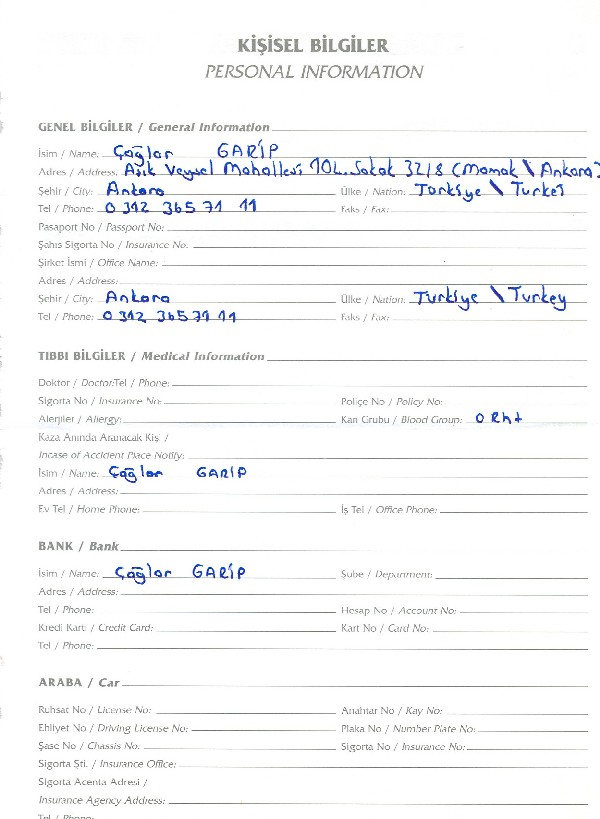 KİŞİSEL BİLGİLER
PERSONAL INFORMATION
GENEL BİLGİLER / General Information
İsim / Name: Çağlar GARİP
Adres / Address: Aşık Veysel Mahallesi 104. Sokak 32/8 (Mamak \ Ankara)
Şehir / City: Ankara Ülke / Nation: Torkiye \ Turkey
Tel / Phone: 0 312 365 71 11 Faks / Fax:
Pasaport No / Passport No:
Şahıs Sigorta No / Insurance No:
Şirket İsmi / Office Name:
Adres / Address:
Şehir / City: Ankara Ülke / Nation: Turkiye \ Turkey
Tel / Phone: 0 312 365 71 11 Faks / Fax:
TIBBI BİLGİLER / Medical Information
Doktor / Doctor:Tel / Phone:
Sigorta No / Insurance No: Poliçe No / Policy No:
Alerjiler / Allergy: Kan Grubu / Blood Group: 0 Rh+
Kaza Anında Aranacak Kişi /
Incase of Accident Place Notify:
İsim / Name: Çağlar GARİP
Adres / Address:
Ev Tel / Home Phone: İş Tel / Office Phone:
BANK / Bank
İsim / Name: Çağlar GARİP Şube / Department:
Adres / Address:
Tel / Phone: Hesap No / Account No:
Kredi Kartı / Credit Card: Kart No / Card No:
Tel / Phone:
ARABA / Car
Ruhsat No / License No: Anahtar No / Kay No:
Ehliyet No / Driving License No: Plaka No / Number Plate No:
Şase No / Chassis No: Sigorta No / Insurance No:
Sigorta Şti. / Insurance Office:
Sigorta Acenta Adresi /
Insurance Agency Address:
Tel / Phone: